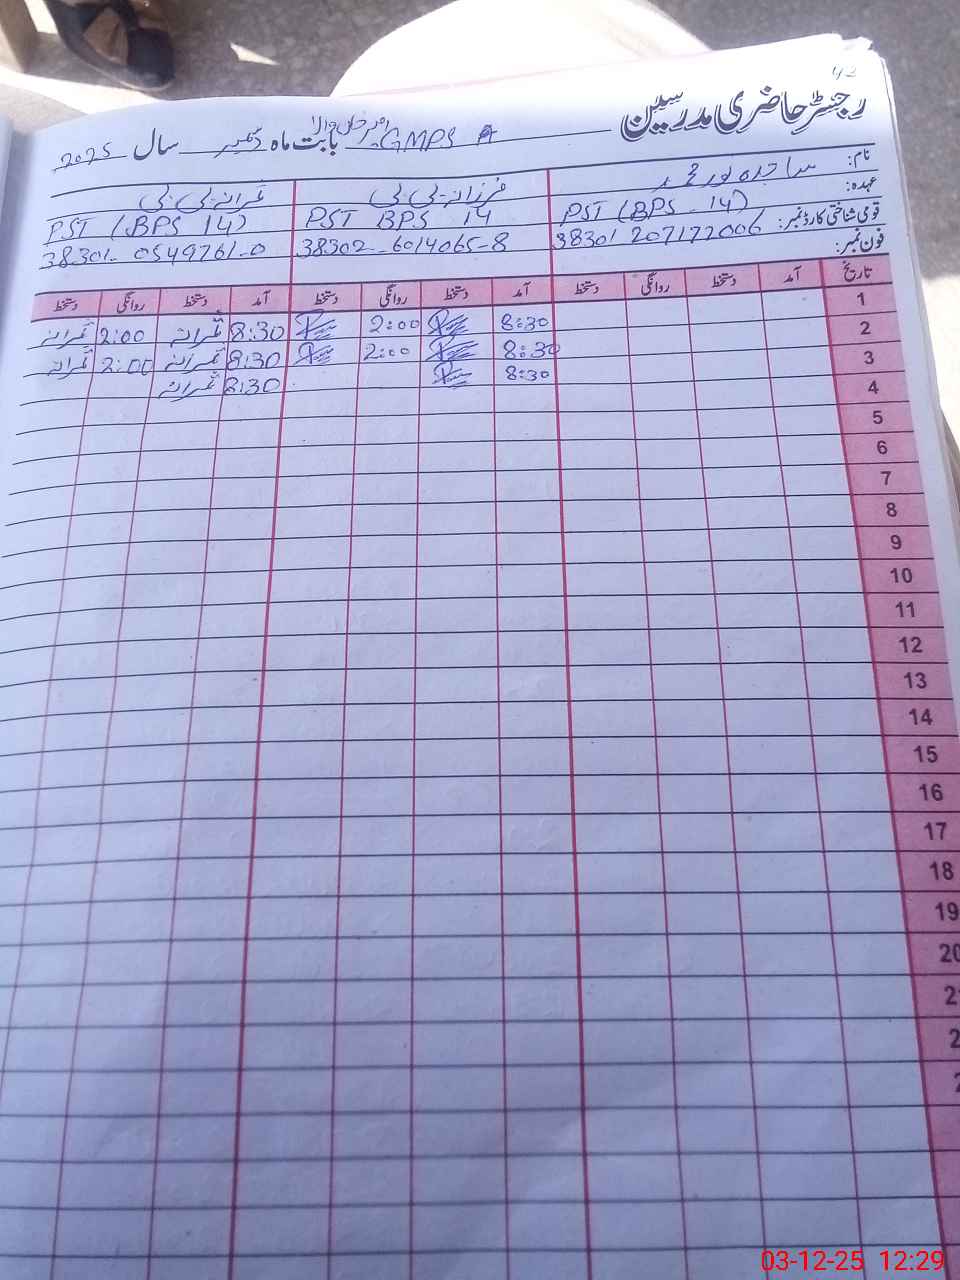 42
رجسٹر حاضری مدرسین
GMPS امیر خان والا بابت ماہ دسمبر سال 2025
نام: ساجدہ نور محمد فرزانہ بی بی عمرانہ بی بی
عہدہ: PST (BPS 14) PST BPS 14 PST (BPS 14)
قومی شناختی کارڈ نمبر: 38301 207177006 38302-6014065-8 38301-0549761-0
فون نمبر:
تاریخ آمد دستخط روانگی دستخط آمد دستخط روانگی دستخط آمد دستخط روانگی دستخط
1 8:30 2:00 8:30 عمرانہ 2:00 عمرانہ
2 8:30 2:00 8:30 عمرانہ 2:00 عمرانہ
3 8:30 8:30 عمرانہ
4
5
6
7
8
9
10
11
12
13
14
15
16
17
18
19
20
03-12-25 12:29